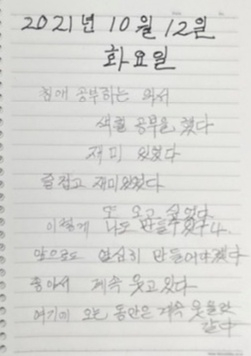 2021년 10월 12일
화요일
침애 공부하는 와서
색칠 공부을 했다
재미 있었다
즐겁고 재미있었다
또 오고 싶었다
이렇게 나도 만들수있구나.
앞으로도 열심히 만들어야겠다
좋아서 계속 웃고있다
여기에 오는 동안은 계속 웃을것
같다